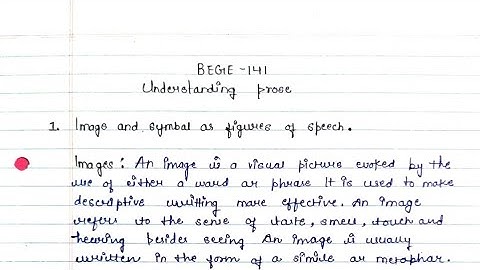 BEGE-141
Understanding prose
1. Image and symbal as figures of speech.
Images: An image is a visual picture evoked by the
use of either a ward ar phrase It is used to make
descriptive writting mare effective. An image
refers to the sense of taste, smell, touch and
hearing besides seeing An image is usually
written in the form of a simile ar metaphar.